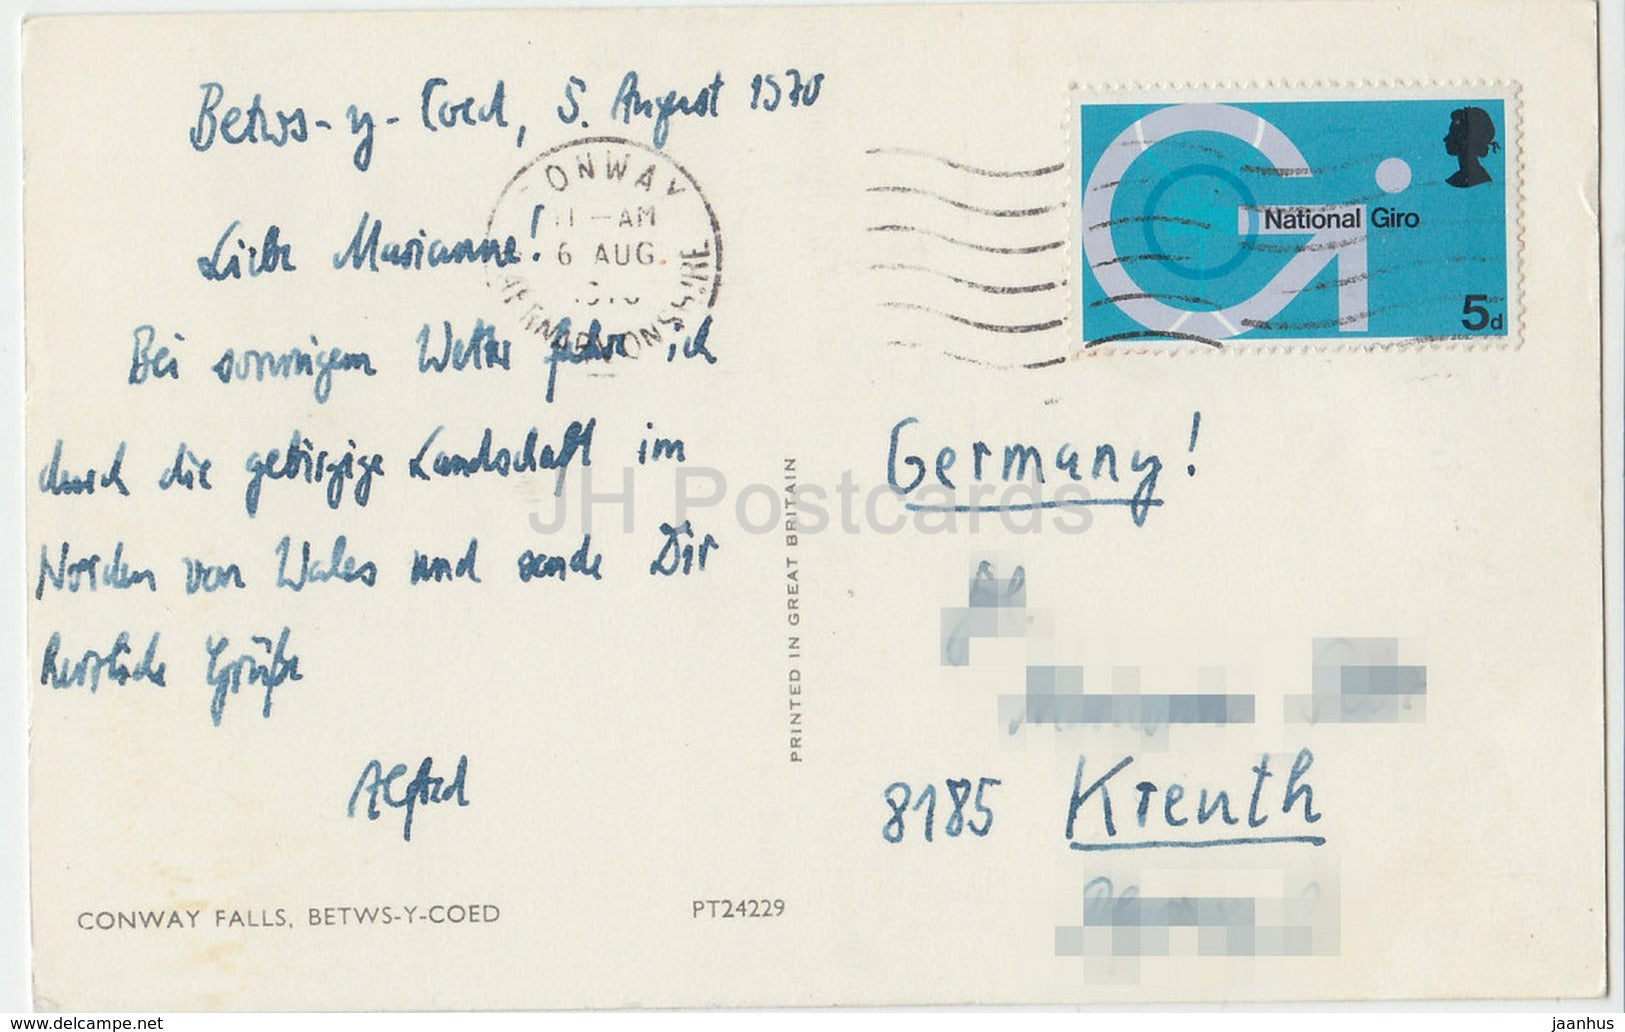 Betws-y-Coed, 5. August 1970
Liebe Marianne!
Bei sonnigem Wetter fahre ich
durch die gebirgige Landschaft im
Norden von Wales und sende Dir
herzliche Grüße
Alfred
CONWAY FALLS, BETWS-Y-COED
PT24229
PRINTED IN GREAT BRITAIN
CONWAY
11 - AM
6 AUG.
1970
CAERNARVONSHIRE
National Giro
5d
Germany!
8185 Kreuth
JH Postcards
delcampe.net
jaanhus